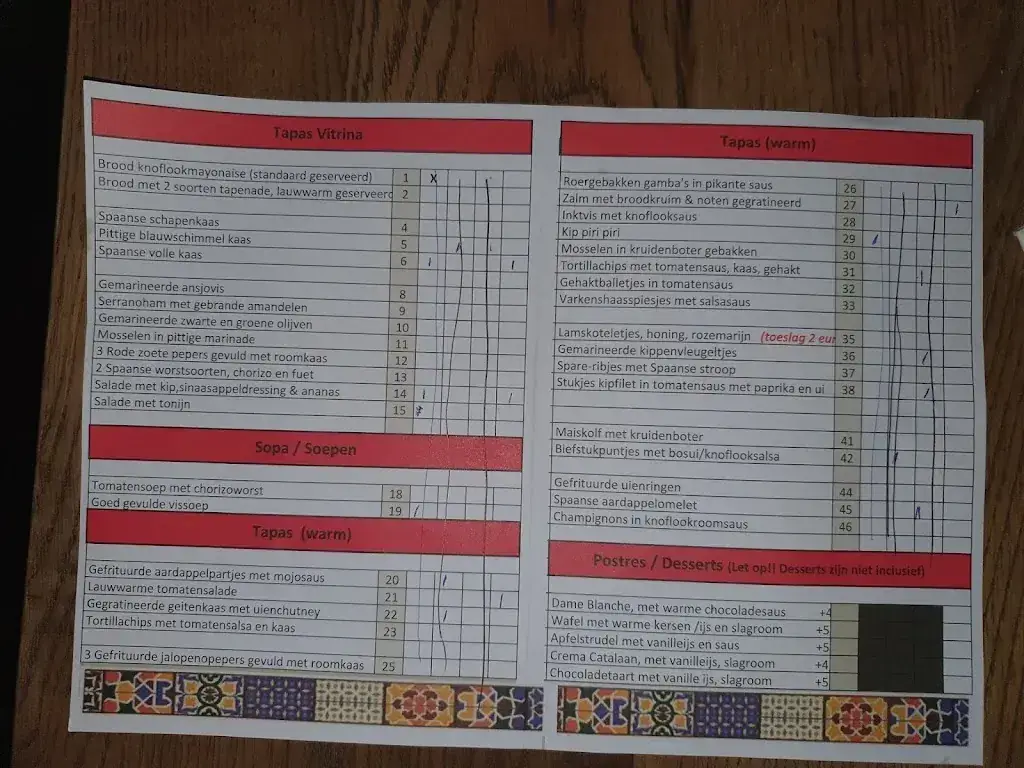 Tapas Vitrina
Brood knoflookmayonaise (standaard geserveerd) 1 X
Brood met 2 soorten tapenade, lauwwarm geserveerd 2
Spaanse schapenkaas 4
Pittige blauwschimmel kaas 5
Spaanse volle kaas 6
Gemarineerde ansjovis 8
Serranoham met gebrande amandelen 9
Gemarineerde zwarte en groene olijven 10
Mosselen in pittige marinade 11
3 Rode zoete pepers gevuld met roomkaas 12
2 Spaanse worstsoorten, chorizo en fuet 13
Salade met kip,sinaasappeldressing & ananas 14
Salade met tonijn 15
Sopa / Soepen
Tomatensoep met chorizoworst 18
Goed gevulde vissoep 19
Tapas (warm)
Gefrituurde aardappelpartjes met mojosaus 20
Lauwwarme tomatensalade 21
Gegratineerde geitenkaas met uienchutney 22
Tortillachips met tomatensalsa en kaas 23
3 Gefrituurde jalopenopepers gevuld met roomkaas 25
Tapas (warm)
Roergebakken gamba's in pikante saus 26
Zalm met broodkruim & noten gegratineerd 27
Inktvis met knoflooksaus 28
Kip piri piri 29
Mosselen in kruidenboter gebakken 30
Tortillachips met tomatensaus, kaas, gehakt 31
Gehaktballetjes in tomatensaus 32
Varkenshaasspiesjes met salsasaus 33
Lamskoteletjes, honing, rozemarijn (toeslag 2 eur 35
Gemarineerde kippenvleugeltjes 36
Spare-ribjes met Spaanse stroop 37
Stukjes kipfilet in tomatensaus met paprika en ui 38
Maiskolf met kruidenboter 41
Biefstukpuntjes met bosui/knoflooksalsa 42
Gefrituurde uienringen 44
Spaanse aardappelomelet 45
Champignons in knoflookroomsaus 46
Postres / Desserts (Let op!! Desserts zijn niet inclusief)
Dame Blanche, met warme chocoladesaus +4
Wafel met warme kersen /ijs en slagroom +5
Apfelstrudel met vanilleijs en saus +5
Crema Catalaan, met vanilleijs, slagroom +4
Chocoladetaart met vanille ijs, slagroom +5